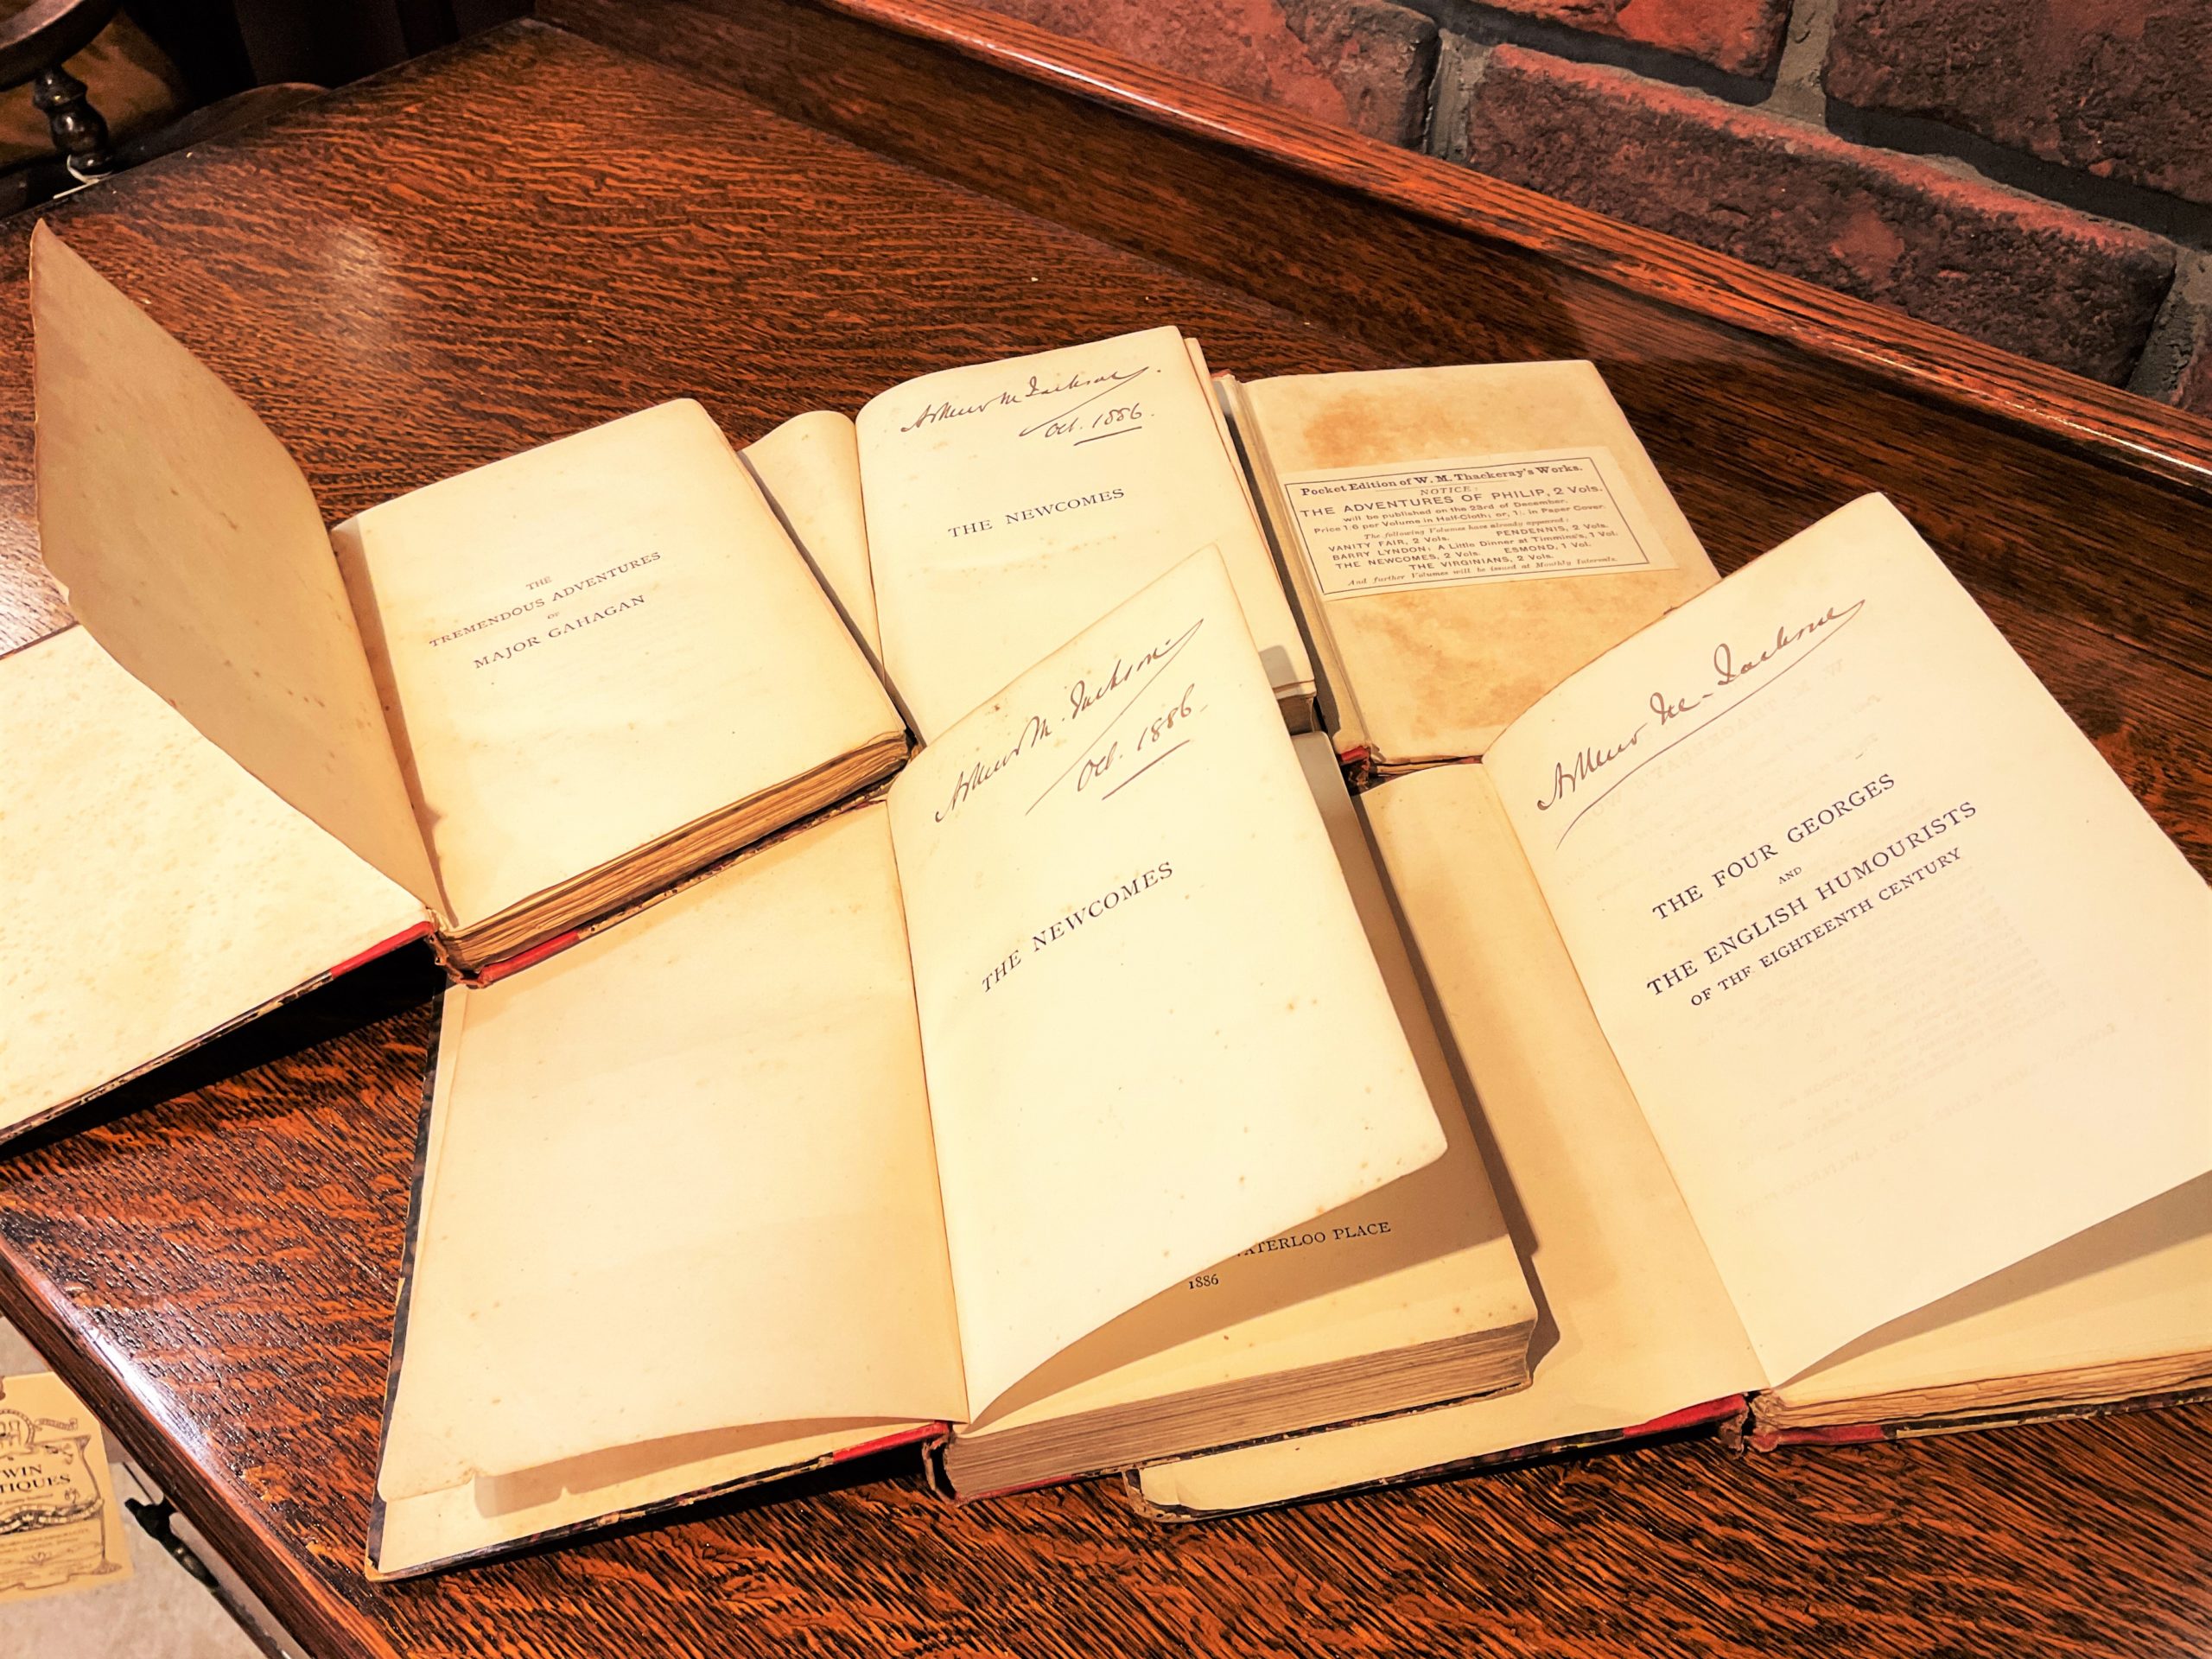 THE
TREMENDOUS ADVENTURES
OF
MAJOR GAHAGAN
Arthur M Jackson.
Oct. 1886.
THE NEWCOMES
Pocket Edition of W. M. Thackeray's Works.
NOTICE:
THE ADVENTURES OF PHILIP, 2 Vols.
will be published on the 23rd of December.
Price 1/6 per Volume in Half-Cloth; or, 1/. in Paper Cover.
The following Volumes have already appeared:
VANITY FAIR, 2 Vols. PENDENNIS, 2 Vols.
BARRY LYNDON: A Little Dinner at Timmins's, 1 Vol.
THE NEWCOMES, 2 Vols. ESMOND, 1 Vol.
THE VIRGINIANS, 2 Vols.
And further Volumes will be issued at Monthly Intervals.
Arthur M. Jackson.
Oct. 1886.
THE NEWCOMES
WATERLOO PLACE
1886
Arthur Jackson
THE FOUR GEORGES
AND
THE ENGLISH HUMOURISTS
OF THE EIGHTEENTH CENTURY
WIN
TIQUES